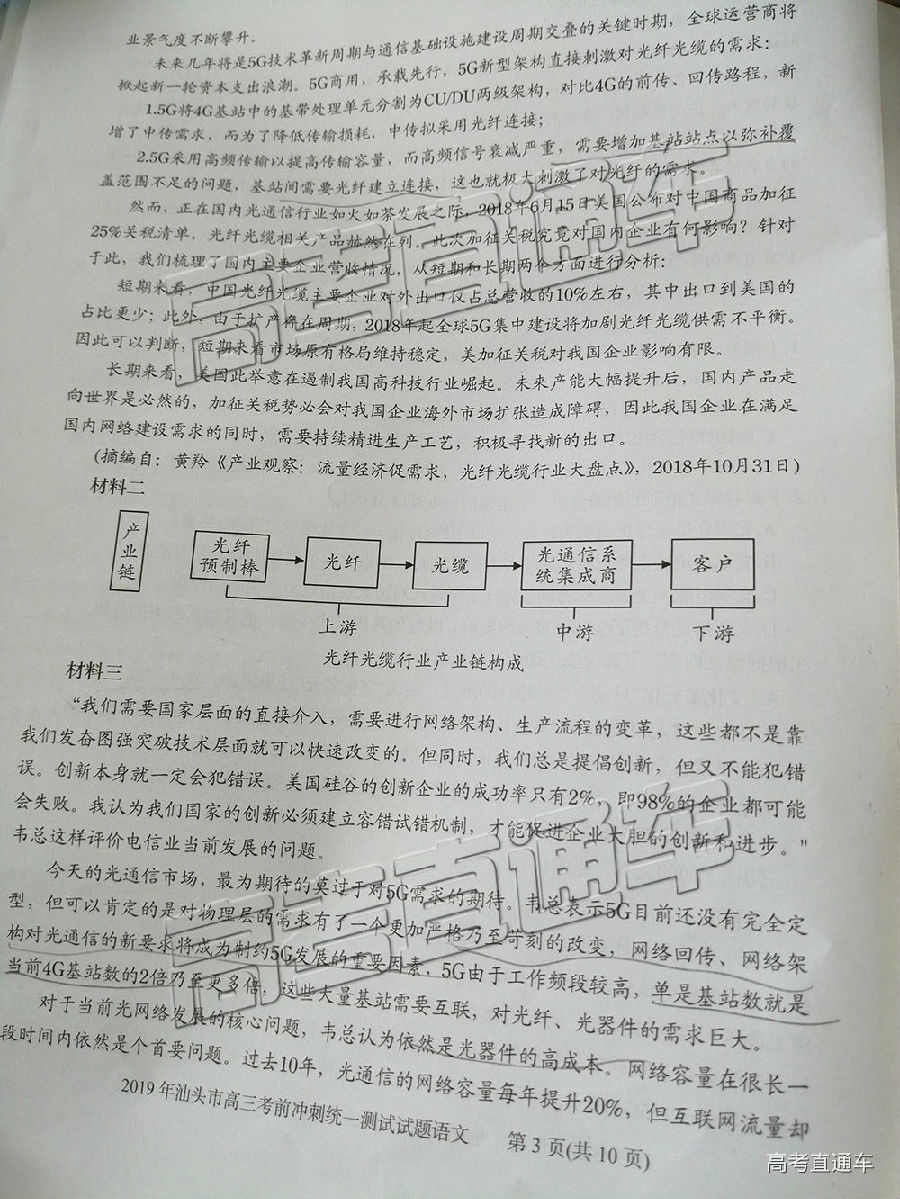 业景气度不断攀升。
未来几年将是5G技术革新周期与通信基础设施建设周期交叠的关键时期，全球运营商将
掀起新一轮资本支出浪潮。5G商用，承载先行，5G新型架构直接刺激对光纤光缆的需求：
1.5G将4G基站中的基带处理单元分割为CU/DU两级架构，对比4G的前传、回传路程，新
增了中传需求，而为了降低传输损耗，中传拟采用光纤连接；
2.5G采用高频传输以提高传输容量，而高频信号衰减严重，需要增加基站站点以弥补覆
盖范围不足的问题，基站间需要光纤建立连接，这也就极大刺激了对光纤的需求。
然而，正在国内光通信行业如火如荼发展之际，2018年6月15日美国公布对中国商品加征
25%关税清单，光纤光缆相关产品赫然在列，此次加征关税究竟对国内企业有何影响？针对
于此，我们梳理了国内主要企业营收情况，从短期和长期两个方面进行分析：
短期来看，中国光纤光缆主要企业对外出口仅占总营收的10%左右，其中出口到美国的
占比更少；此外，由于扩产存在周期，2018年起全球5G集中建设将加剧光纤光缆供需不平衡。
因此可以判断，短期来看市场原有格局维持稳定，美加征关税对我国企业影响有限。
长期来看，美国此举意在遏制我国高科技行业崛起。未来产能大幅提升后，国内产品走
向世界是必然的，加征关税势必会对我国企业海外市场扩张造成障碍，因此我国企业在满足
国内网络建设需求的同时，需要持续精进生产工艺，积极寻找新的出口。
(摘编自：黄羚《产业观察：流量经济促需求，光纤光缆行业大盘点》，2018年10月31日)
材料二
产业链
光纤预制棒
光纤
光缆
光通信系统集成商
客户
上游
中游
下游
光纤光缆行业产业链构成
材料三
“我们需要国家层面的直接介入，需要进行网络架构、生产流程的变革，这些都不是靠
我们发奋图强突破技术层面就可以快速改变的。但同时，我们总是提倡创新，但又不能犯错
误。创新本身就一定会犯错误。美国硅谷的创新企业的成功率只有2%，即98%的企业都可能
会失败。我认为我们国家的创新必须建立容错试错机制，才能促进企业大胆的创新和进步。"
韦总这样评价电信业当前发展的问题。
今天的光通信市场，最为期待的莫过于对5G需求的期待。韦总表示5G目前还没有完全定
型，但可以肯定的是对物理层的需求有了一个更加严格乃至苛刻的改变，网络回传、网络架
构对光通信的新要求将成为制约5G发展的重要因素，5G由于工作频段较高，单是基站数就是
当前4G基站数的2倍乃至更多倍，这些大量基站需要互联，对光纤、光器件的需求巨大。
对于当前光网络发展的核心问题，韦总认为依然是光器件的高成本。网络容量在很长一
段时间内依然是个首要问题。过去10年，光通信的网络容量每年提升20%，但互联网流量却
2019年汕头市高三考前冲刺统一测试试题语文 第3页(共10页)
高考直通车
高考直通车
高考直通车